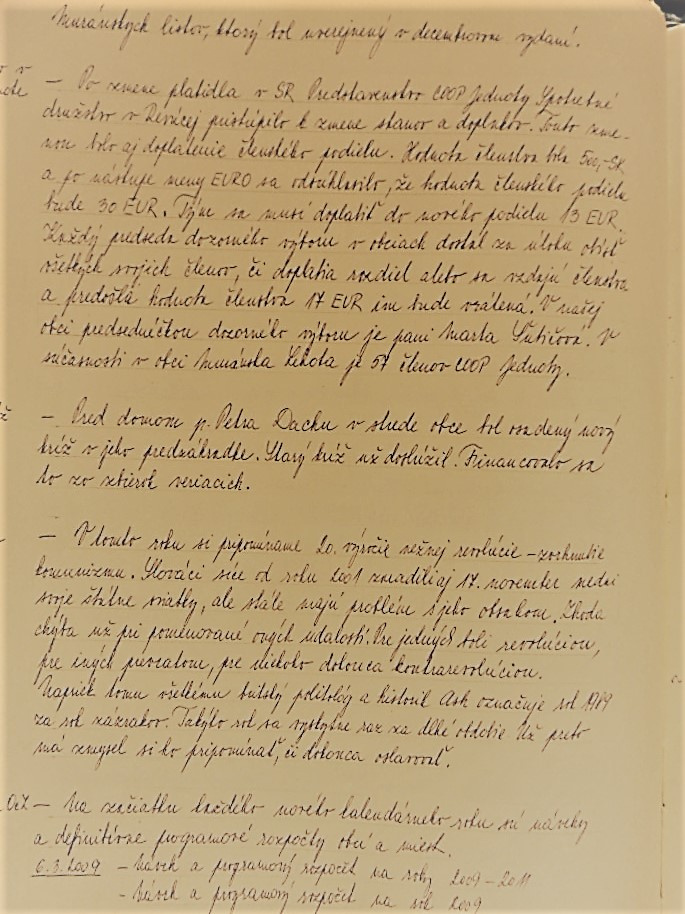 Muránskych listov, ktorý bol uverejnený v decembrovom vydaní.
– Po zmene platidla v SR Predstavenstvo COOP Jednoty Spotrebné
družstvo v Revúcej pristúpilo k zmene stanov a doplnkov. Touto zme-
nou bolo aj doplatenie členského podielu. Hodnota členstva bola 500,-SK
a po nástupe meny EURO sa odsúhlasilo, že hodnota členského podielu
bude 30 EUR. Tým sa musí doplatiť do nového podielu 13 EUR.
Každý predseda dozorného výboru v obciach dostal za úlohu obísť
všetkých svojich členov, či doplatia rozdiel alebo sa vzdajú členstva
a predošlá hodnota členstva 17 EUR im bude vrátená. V našej
obci predsedníčkou dozorného výboru je pani Marta. V
súčasnosti v obci Muránska Lehota je 57 členov COOP Jednoty.
– Pred domom p. Petra Dachu v strede obce bol osadený nový
kríž v jeho predzáhradke. Starý kríž už doslúžil. Financovalo sa
to zo zbierok veriacich.
– V tomto roku si pripomíname 20. výročie nežnej revolúcie – zosunutie
komunizmu. Slováci síce od roku 2001 zaradili aj 17. november medzi
svoje štátne sviatky, ale stále majú problém s jeho obsahom. Zhoda
chýba už pri pomenovaní oných udalostí. Pre jedných boli revolúciou,
pre iných prevratom, pre niekoho dokonca kontrarevolúciou.
Napriek tomu všetkému britský politológ a historik Ash označuje rok 1989
za rok zázrakov. Takýto rok sa vyskytne raz za dlhé obdobie. Už preto
má zmysel si ho pripomínať, či dokonca oslavovať.
OcZ – Na začiatku každého nového kalendárneho roku sú návrhy
a definitívne programové rozpočty obcí a miest.
6.3.2009 – Návrh a programový rozpočet na roky 2009 – 2011
– Návrh a programový rozpočet na rok 2009